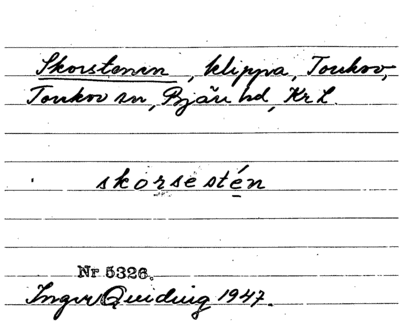 Skorstenen, klippa, Torekov,
Torekov sn, Bjäre hd, Kr L.
skorsestén
Nr 5326.
Ingvar Quiding 1947.